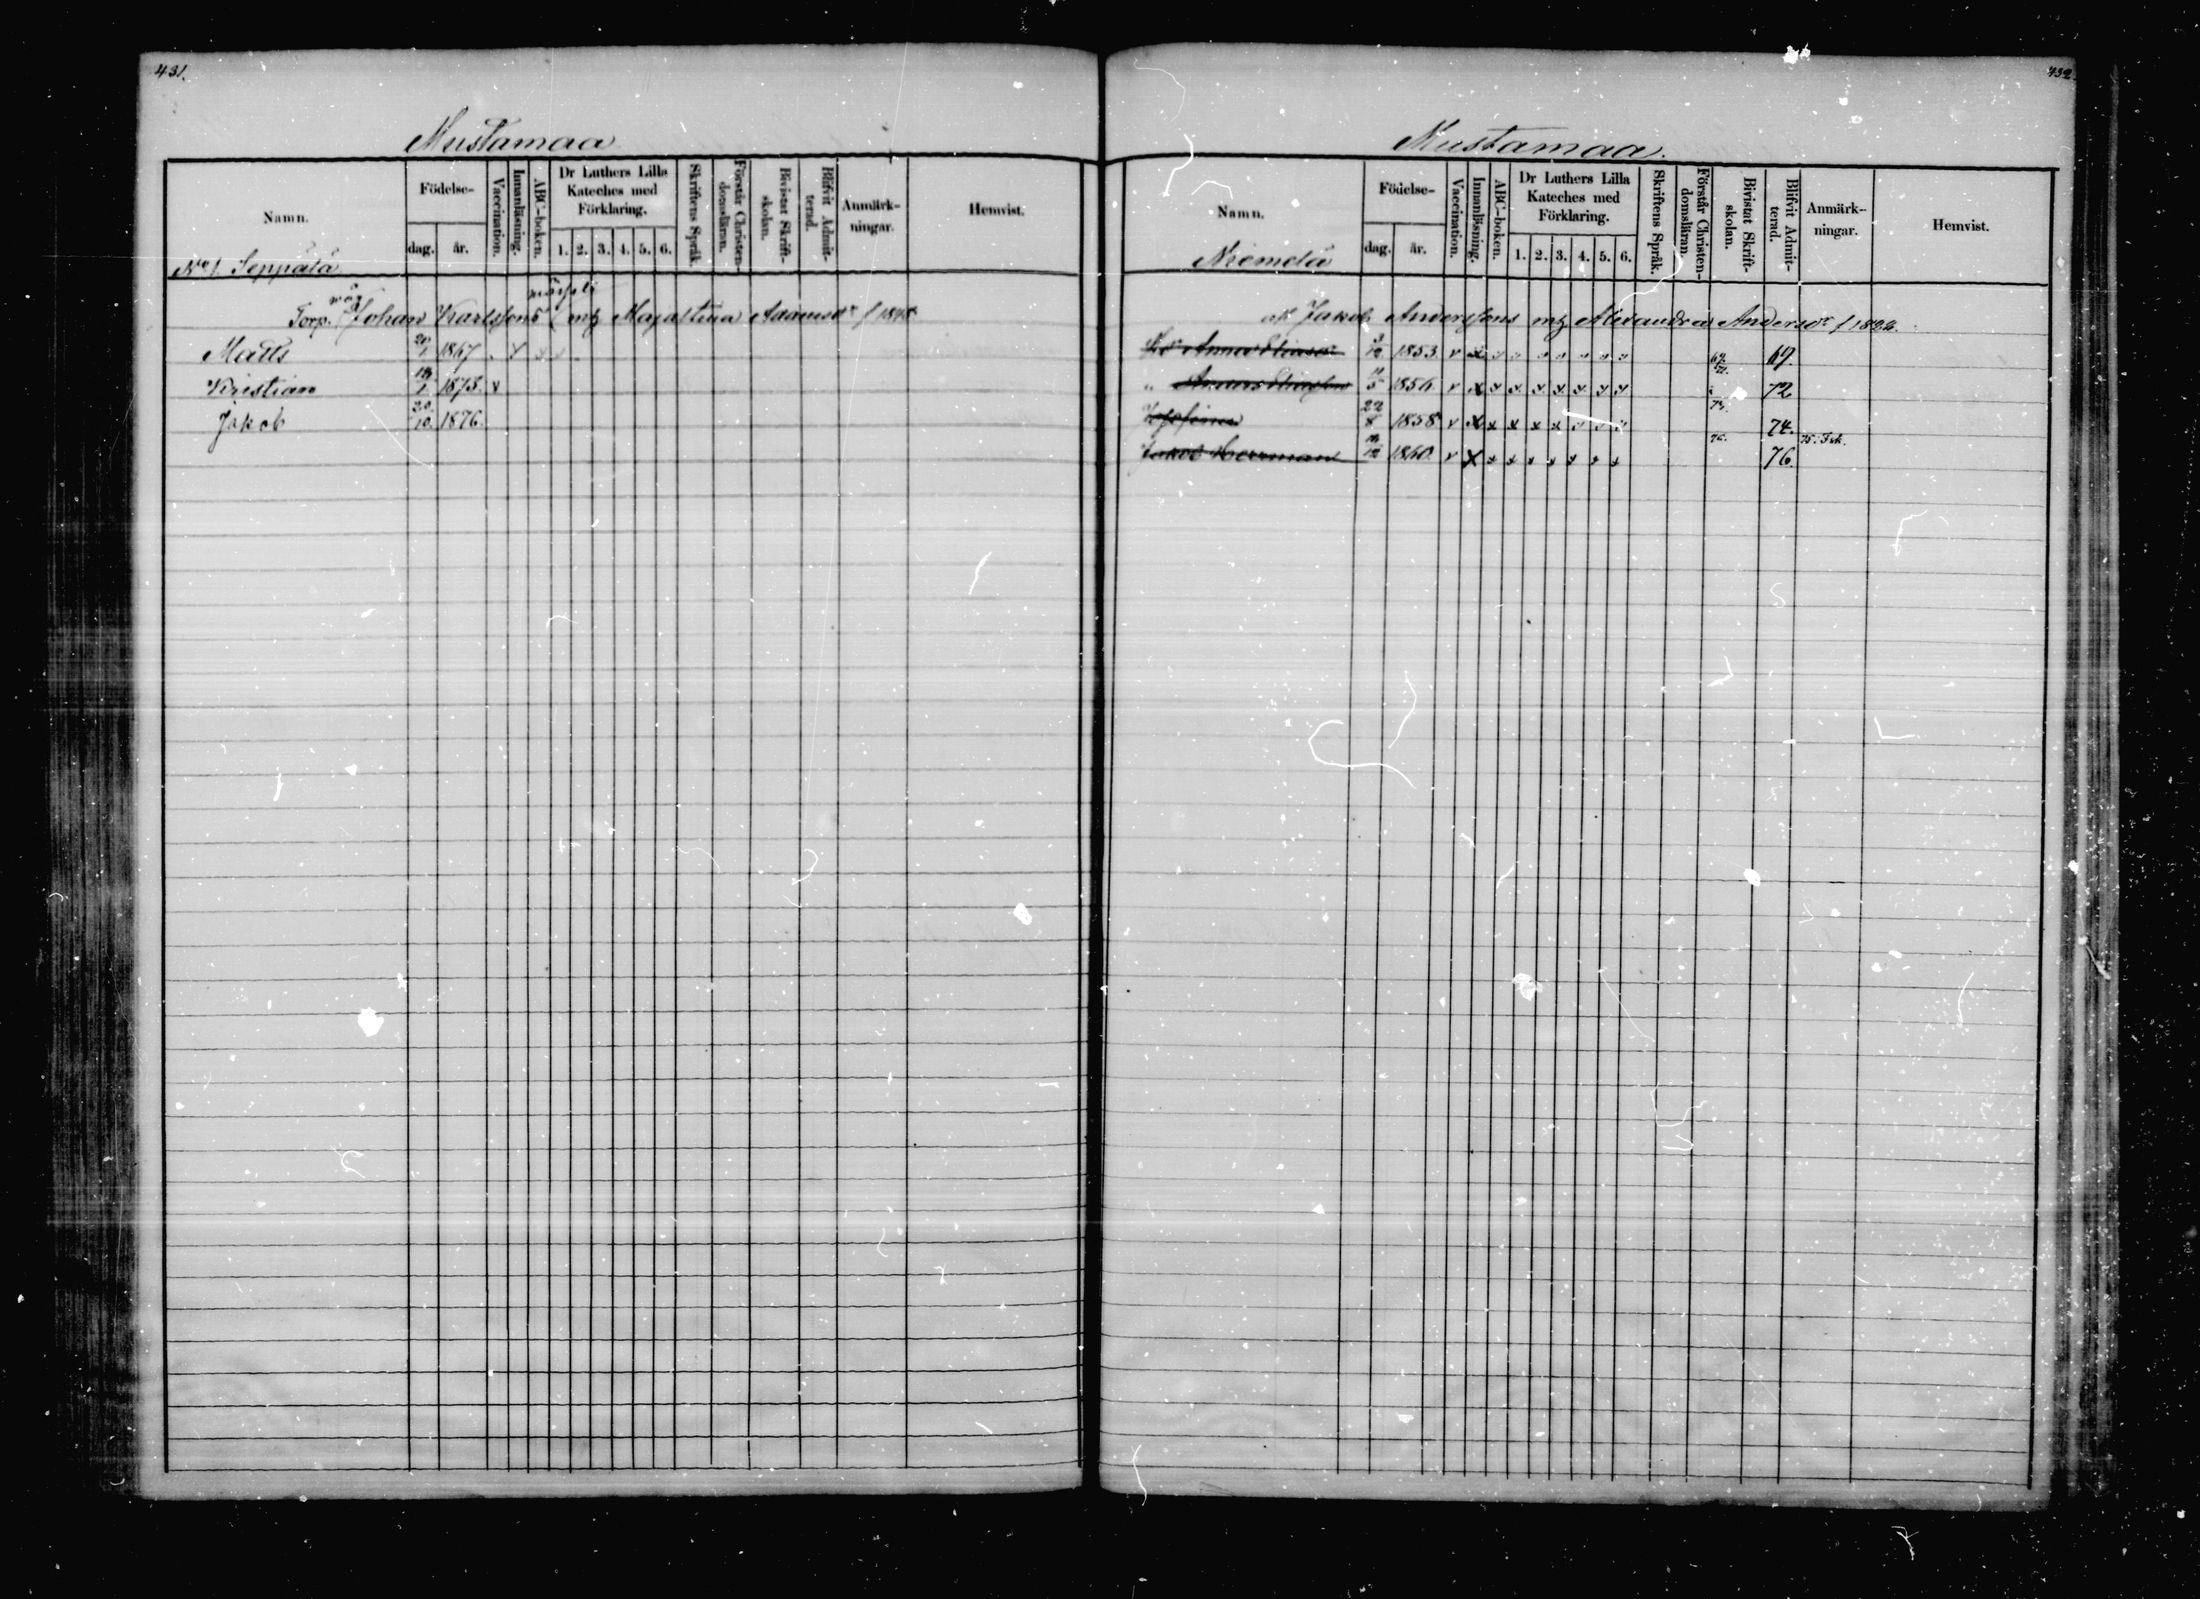 431.
Mustamaa
Namn.
Födelse-
dag. år.
Vaccination.
Innanläsning.
ABC-boken.
Dr Luthers Lilla Kateches med Förklaring.
1. 2. 3. 4. 5. 6.
Skriftens Språk.
Förstår Christen-domsläran.
Bivistat Skrift-skolan.
Blifvit Admit-terad.
Anmärk-ningar.
Hemvist.
No 1. Seppälä
Torp. Johan Karlssons mh Majastina Adamsdr f 1845
Matts 20/1 1867.
Kristian 1873. v
Jakob 20/10. 1876.
432.
Mustamaa.
Namn.
Födelse-
dag. år.
Vaccination.
Innanläsning.
ABC-boken.
Dr Luthers Lilla Kateches med Förklaring.
1. 2. 3. 4. 5. 6.
Skriftens Språk.
Förstår Christen-domsläran.
Bivistat Skrift-skolan.
Blifvit Admit-terad.
Anmärk-ningar.
Hemvist.
Niemelä
Jakob Anderssons mh Alexandra Andersdr f 1826.
3/12 1853. 69.
1856. 72
22/8 1858 73. 74.
Jakob Herrman 1860. 76. 76.